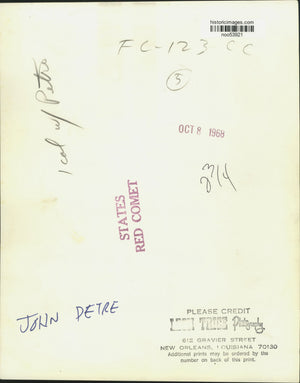 historicimages.com
noo53921
FC-123 CC
5
1 col w/ Petre
OCT 8 1968
2 3/4
STATES
RED COMET
JOHN PETRE
PLEASE CREDIT
LEON TRICE Photography
612 GRAVIER STREET
NEW ORLEANS, LOUISIANA 70130
Additional prints may be ordered by the
number on back of this print.